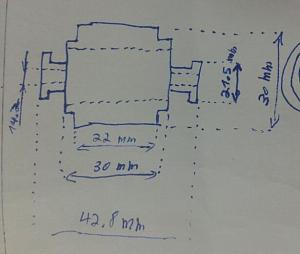 21.5 mm
30 mm
22 mm
30 mm
42.8 mm